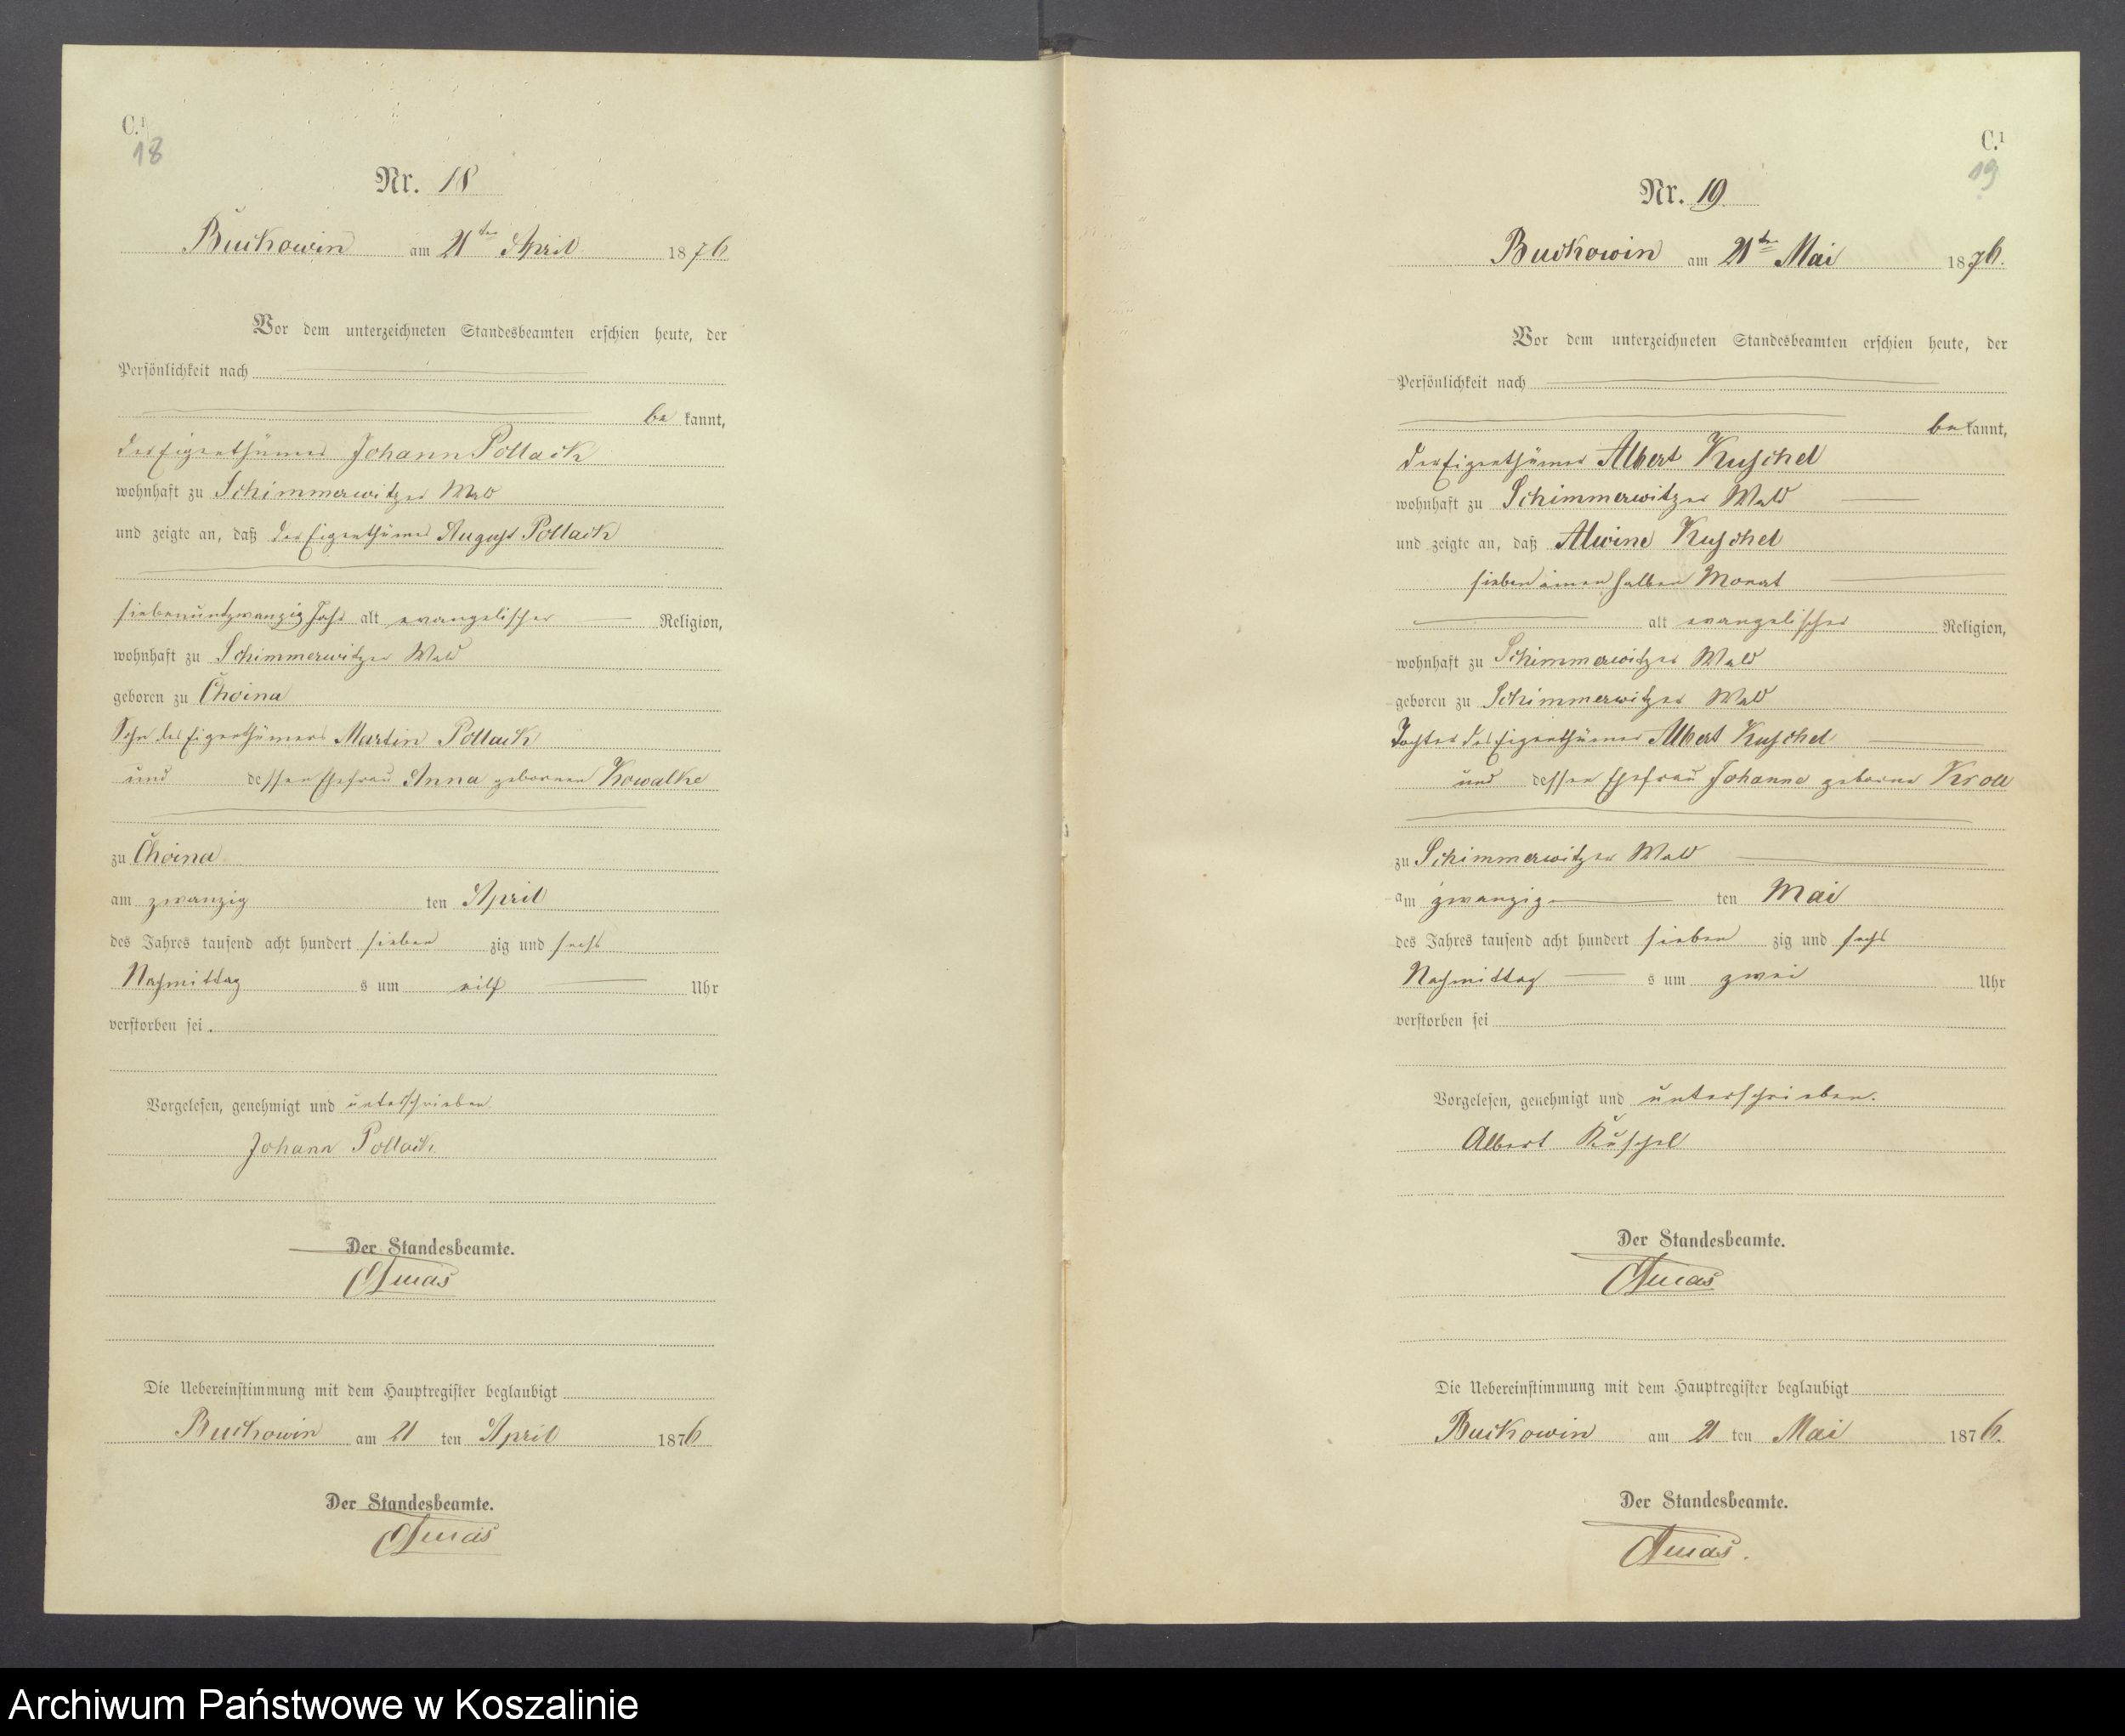 C.1
18
Nr. 18
Buckowin am 21ten April 1876
Vor dem unterzeichneten Standesbeamten erschien heute, der
Persönlichkeit nach
be kannt,
der Eigenthümer Johann Pollack
wohnhaft zu Schimmerwitzer Wald
und zeigte an, daß der Eigenthümer August Pollack
siebenundzwanzig Jahr alt evangelischer Religion,
wohnhaft zu Schimmerwitzer Wald
geboren zu Choina
Sohn des Eigenthümers Martin Pollack
und dessen Ehefrau Anna gebornen Kowalke
zu Choina
am zwanzig ten April
des Jahres tausend acht hundert sieben zig und sechs
Nachmittag s um eilf Uhr
verstorben sei.
Vorgelesen, genehmigt und unterschrieben.
Johann Pollack.
Der Standesbeamte.
Die Uebereinstimmung mit dem Hauptregister beglaubigt
Buckowin am 21 ten April 1876
Der Standesbeamte.
C.1
19
Nr. 19
Buckowin am 21ten Mai 1876.
Vor dem unterzeichneten Standesbeamten erschien heute, der
Persönlichkeit nach
bekannt,
der Eigenthümer Albert Kuschel
wohnhaft zu Schimmerwitzer Wald
und zeigte an, daß Alwine Kuschel
sieben einen halben Monat
alt evangelischer Religion,
wohnhaft zu Schimmerwitzer Wald
geboren zu Schimmerwitzer Wald
Tochter des Eigenthümer Albert Kuschel
und dessen Ehefrau Johanne geborne Kroll
zu Schimmerwitzer Wald
am zwanzig ten Mai
des Jahres tausend acht hundert sieben zig und sechs
Nachmittag s um zwei Uhr
verstorben sei
Vorgelesen, genehmigt und unterschrieben.
Albert Kuschel
Der Standesbeamte.
Die Uebereinstimmung mit dem Hauptregister beglaubigt
Buckowin am 21 ten Mai 1876.
Der Standesbeamte.
Archiwum Państwowe w Koszalinie